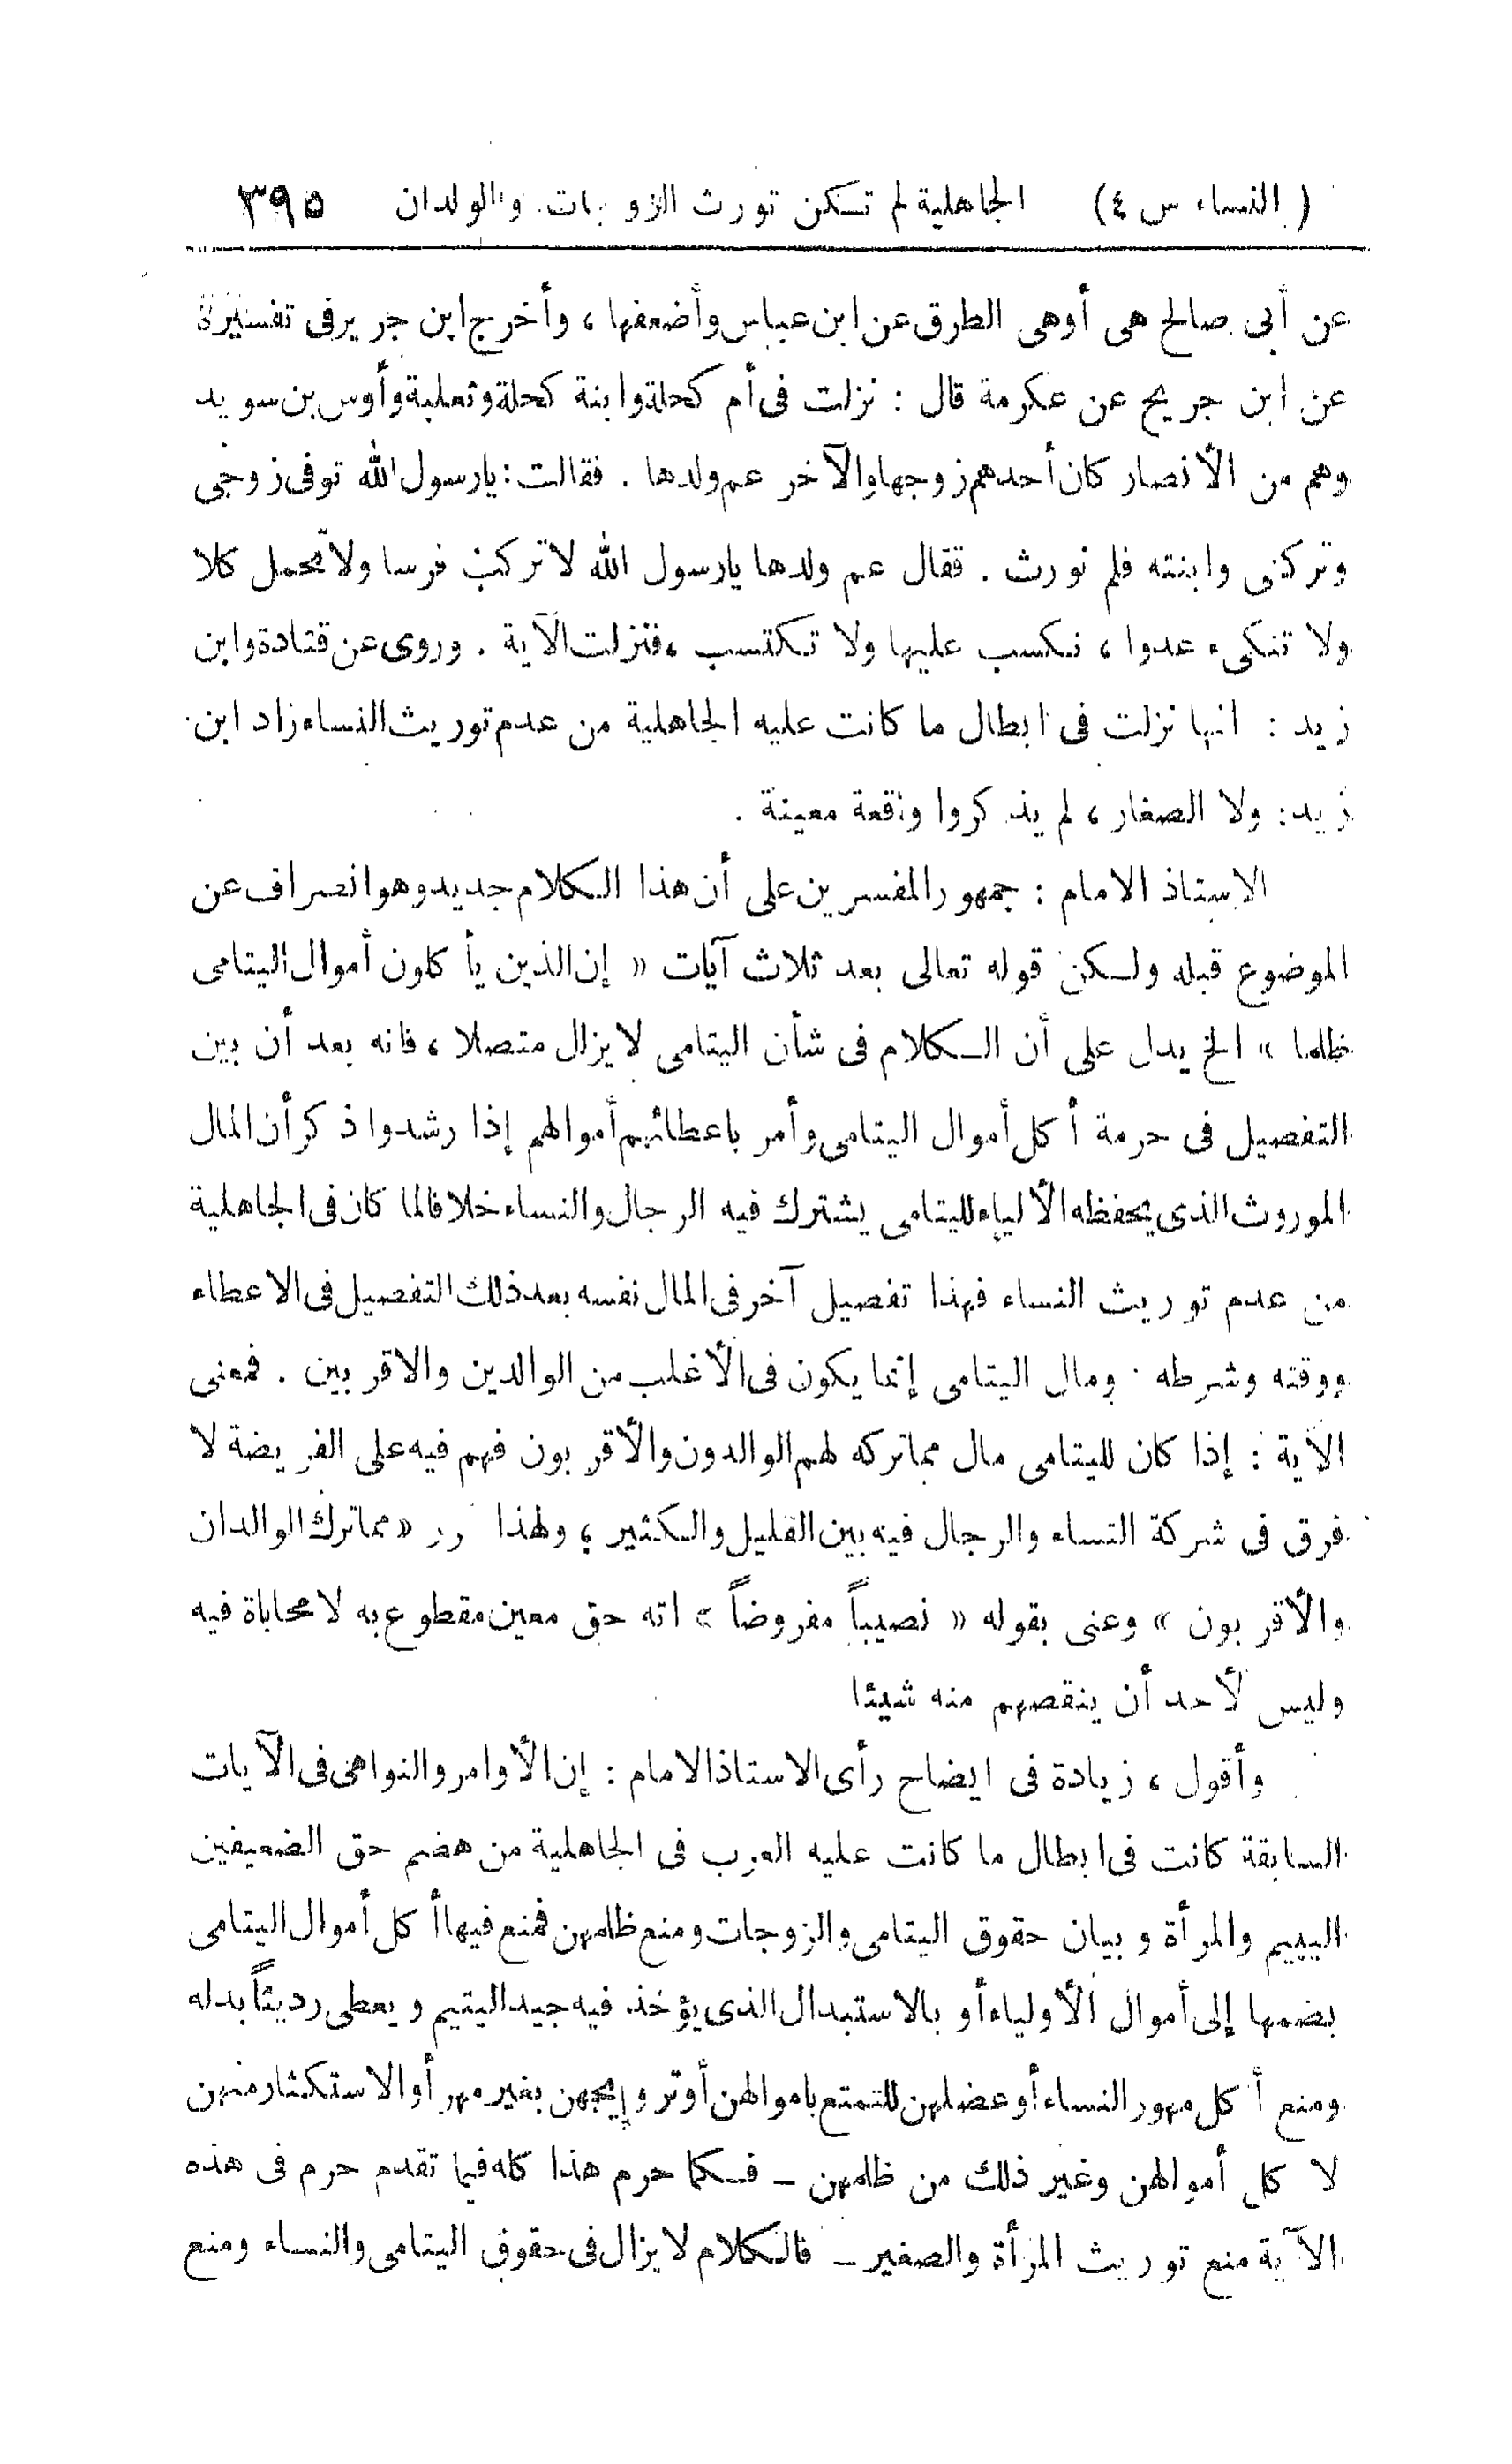 ( النساء س ٤) الجاهلية لم تكن تورث الزوجات والولدان ٣٩٥
عن أبى صالح هى أوهى الطرق عن ابن عباس وأضعفها ، وأخرج ابن جرير فى تفسيره
عن ابن جريج عن عكرمة قال : نزلت فى أم كحلة وابنة كحلة وثعلبة وأوس بن سويد
وهم من الأنصار كان أحدهم زوجها والآخر عم ولدها . فقالت : يارسول الله توفى زوجى
وتركنى وابنته فلم نورث . فقال عم ولدها يارسول الله لا تركب فرسا ولا تحمل كلا
ولا تنكىء عدوا ، نكسب عليها ولا تكتسب ، فنزلت الآية . وروى عن قتادة وابن
زيد : انها نزلت فى ابطال ما كانت عليه الجاهلية من عدم توريث النساء زاد ابن
زيد: ولا الصغار ، لم يذكروا واقعة معينة .
الاستاذ الامام : جمهور المفسرين على أن هذا الكلام جديد وهو انصراف عن
الموضوع قبله ولكن قوله تعالى بعد ثلاث آيات « إن الذين يأكلون أموال اليتامى
ظلما » الخ يدل على أن الكلام فى شأن اليتامى لا يزال متصلا ، فانه بعد أن بين
التفصيل فى حرمة أكل أموال اليتامى وأمر باعطائهم أموالهم إذا رشدوا ذكر أن المال
الموروث الذى يحفظه الألياء لليتامى يشترك فيه الرجال والنساء خلافا لما كان فى الجاهلية
من عدم توريث النساء فهذا تفصيل آخر فى المال نفسه بعد ذلك التفصيل فى الاعطاء
ووقته وشرطه . ومال اليتامى إنما يكون فى الأغلب من الوالدين والاقربين . فمعنى
الآية : إذا كان لليتامى مال مما تركه لهم الوالدون والأقربون فهم فيه على الفريضة لا
فرق فى شركة النساء والرجال فيه بين القليل والكثير ، ولهذا « مما ترك الوالدان
والأقربون » وعنى بقوله « نصيباً مفروضاً » انه حق معين مقطوع به لا محاباة فيه
وليس لأحد أن ينقصهم منه شيئا
وأقول ، زيادة فى ايضاح رأى الاستاذ الامام : إن الأوامر والنواهى فى الآيات
السابقة كانت فى ابطال ما كانت عليه العرب فى الجاهلية من هضم حق الضعيفين
اليتيم والمرأة وبيان حقوق اليتامى والزوجات ومنع ظلمهن فمنع فيها أكل أموال اليتامى
بضمها إلى أموال الأولياء أو بالاستبدال الذى يؤخذ فيه جيد اليتيم ويعطى رديئاً بدله
ومنع أكل مهور النساء أو عضلهن للتمتع باموالهن أو تزويجهن بغير مهر أو الاستكثار منهن
لا كل أموالهن وغير ذلك من ظلمهن ــ فكما حرم هذا كله فيما تقدم حرم فى هذه
الآية منع توريث المرأة والصغير ــ فالكلام لا يزال فى حقوق اليتامى والنساء ومنع